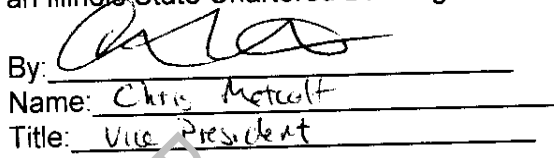 an Illinois State Chartered
By:
Name: Chris Metcalf
Title: Vice President